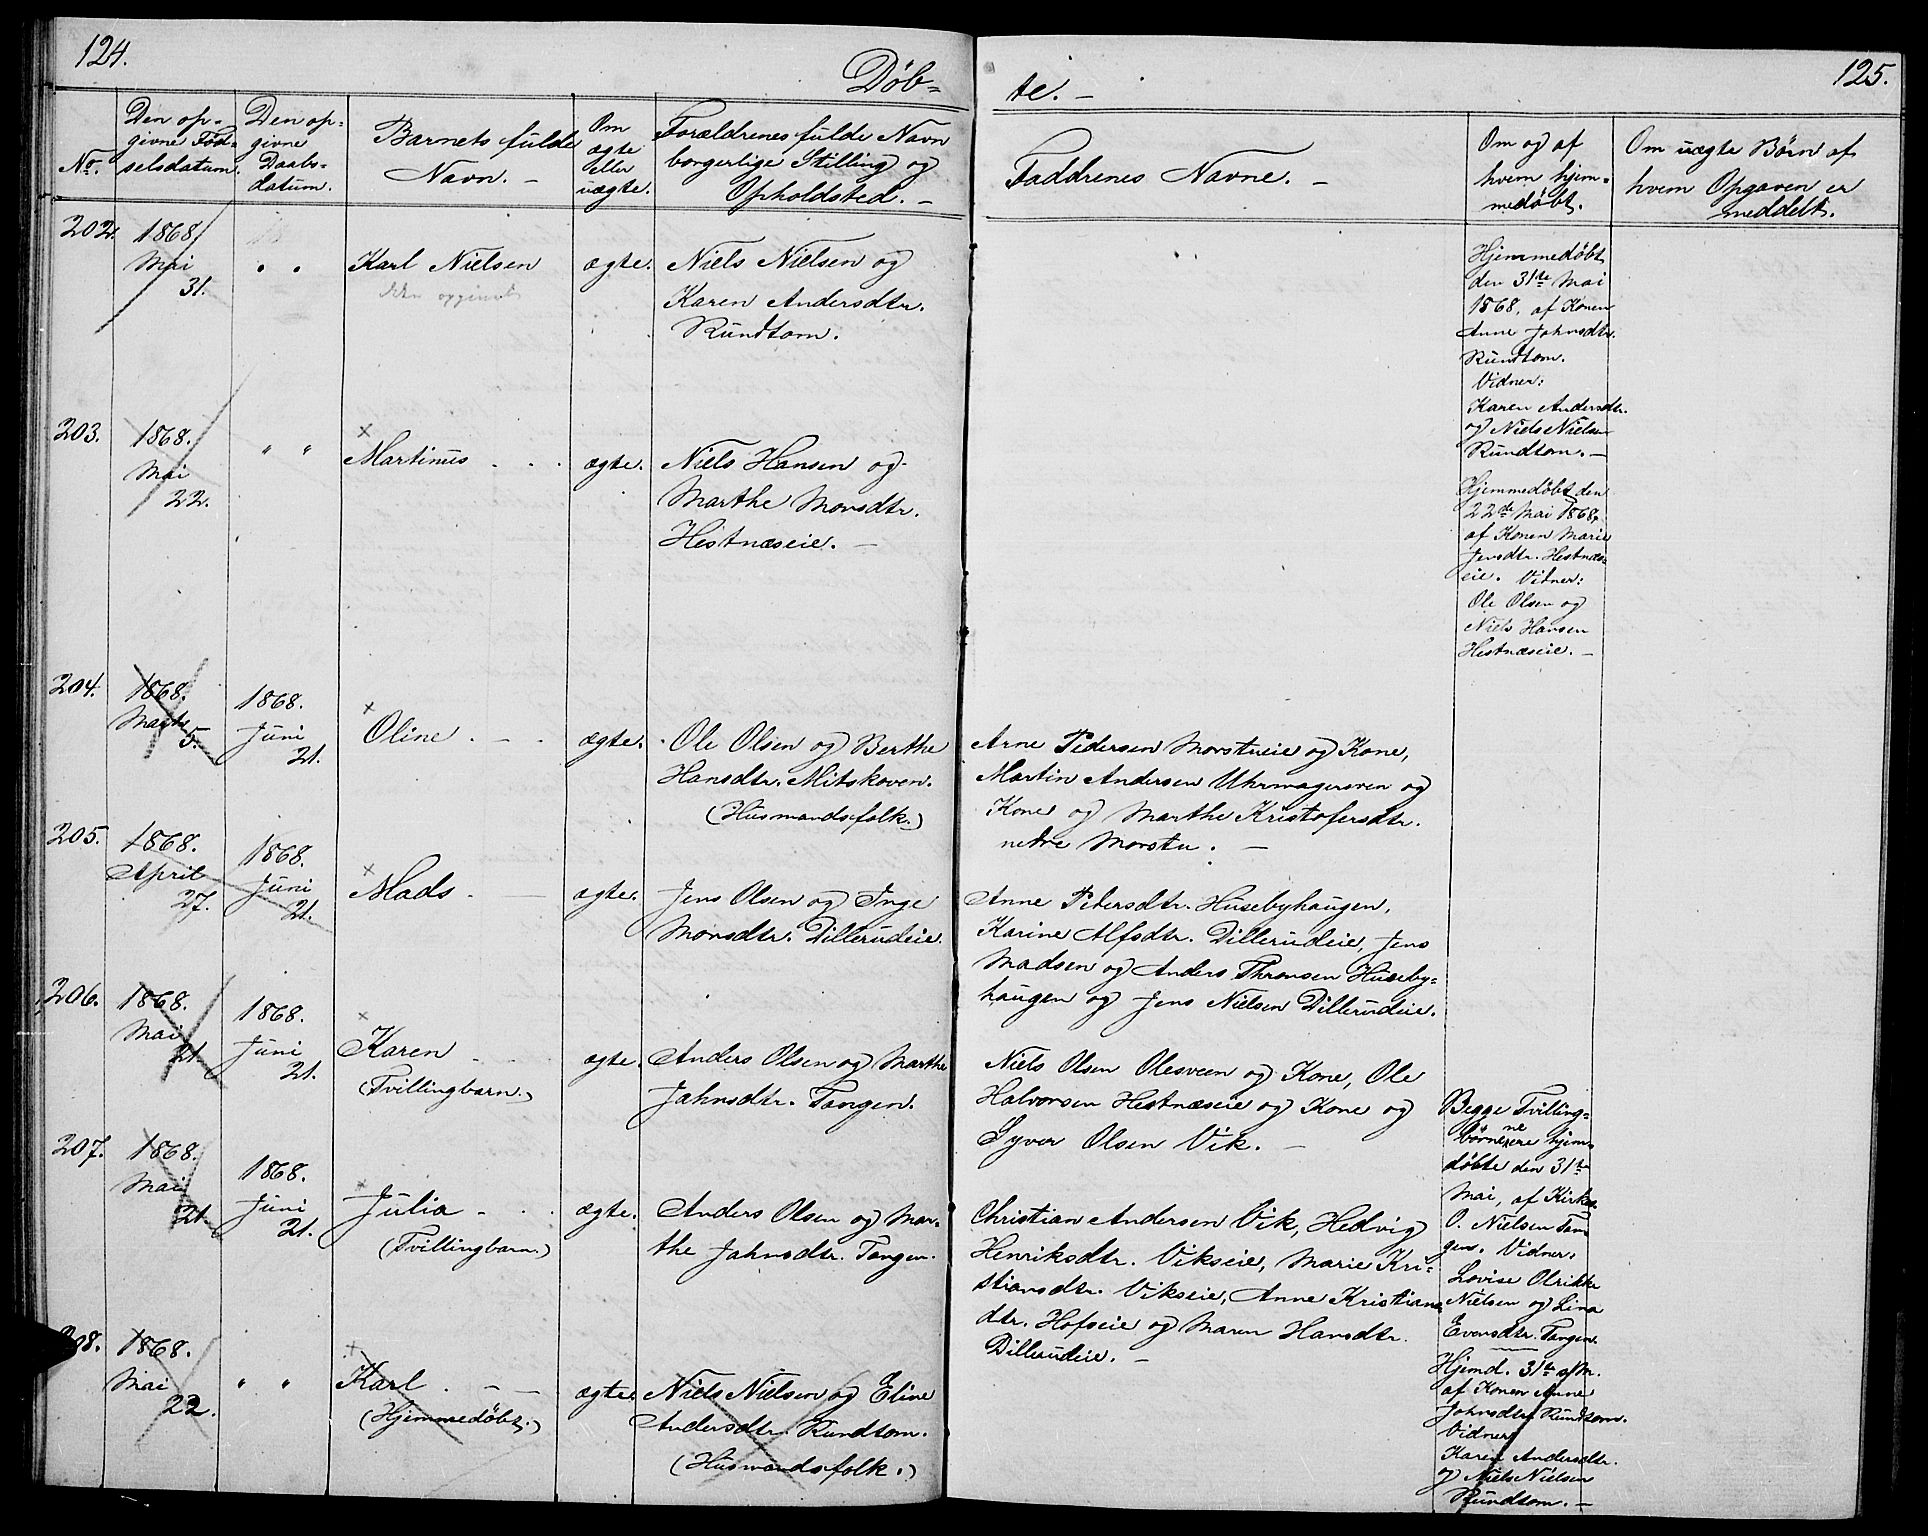 124.
Døb-
No.
Den op-
givne Fød-
selsdatum.
Den op-
givne
Daabs-
datum.
Barnets fulde
Navn. -
Om
ægte
eller
uægte.
Forældrenes fulde Navn
borgerlige Stilling og
Opholdsted. -
202.
1868.
Mai
31.
" "
Karl Nielsen
ægte.
Niels Nielsen og
Karen Andersdtr.
Rundtom.
203.
1868.
Mai
22.
" "
Martinus
ægte.
Niels Hansen og
Marthe Monsdtr.
Hestnæseie. -
204.
1868.
Marts
5.
1868.
Juni
21.
Oline
ægte.
Ole Olsen og Berthe
Hansdtr. Mitskoven.
(Husmandsfolk.)
205.
1868.
April
27.
1868.
Juni
21.
Mads
ægte.
Jens Olsen og Inge
Monsdtr. Dillerudeie.
206.
1868.
Mai
21.
1868.
Juni
21.
Karen
(Tvillingbarn.)
ægte.
Anders Olsen og Marthe
Jahnsdtr. Tangen.
207.
1868.
Mai
21.
1868.
Juni
21.
Julia
(Tvillingbarn.)
ægte.
Anders Olsen og Mar-
the Jahnsdtr. Tangen.
208.
1868.
Mai
22.
" "
Karl
(Hjemmedøbt.)
ægte.
Niels Nielsen og Eline
Andersdtr. Rundtom.
(Husmandsfolk.)
125.
te. -
Faddrenes Navne. -
Om og af
hvem hjem-
medøbt.
Om uægte Børn af
hvem Opgaven er
meddelt.
Hjemmedøbt
den 31te Mai
1868, af Konen
Anne Jahnsdtr.
Rundtom.
Vidner:
Karen Andersdtr.
og Niels Nielsen
Rundtom. -
Hjemmedøbt den
22de Mai 1868,
af Konen Marie
Jensdtr. Hestnæs-
eie. Vidner:
Ole Olsen og
Niels Hansen
Hestnæseie. -
Arne Pedersen Morstueie og Kone,
Martin Andersen Uhrmagersven og
Kone og Marthe Kristofersdtr.
nedre Morstu. -
Anne Petersdtr. Husebyhaugen,
Karine Alfsdtr. Dillerudeie, Jens
Madsen og Anders Thronsen Huseby-
haugen og Jens Nielsen Dillerudeie.
Niels Olsen Olesveen og Kone, Ole
Halvorsen Hestnæseie og Kone og
Syver Olsen Vik. -
Begge Tvilling-
børnene ere hjem-
døbte den 31te
Mai, af Kirkes.
O. Nielsen Tan-
gen. Vidner:
Lovise Olrikke
Nielsen og Lina
Evensdtr. Tangen.
Christian Andersen Vik, Hedvig
Henriksdtr. Vikseie, Marie Kri-
stiansdtr. Vikseie, Anne Kristians
dtr. Hofseie og Maren Hansdtr.
Dillerudeie. -
Hjemd. 31te af M.
af Konen Anne
Jahnsdtr. Rundtom.
Vidner:
Karen Andersdtr.
og Niels Nielsen
Rundtom. -